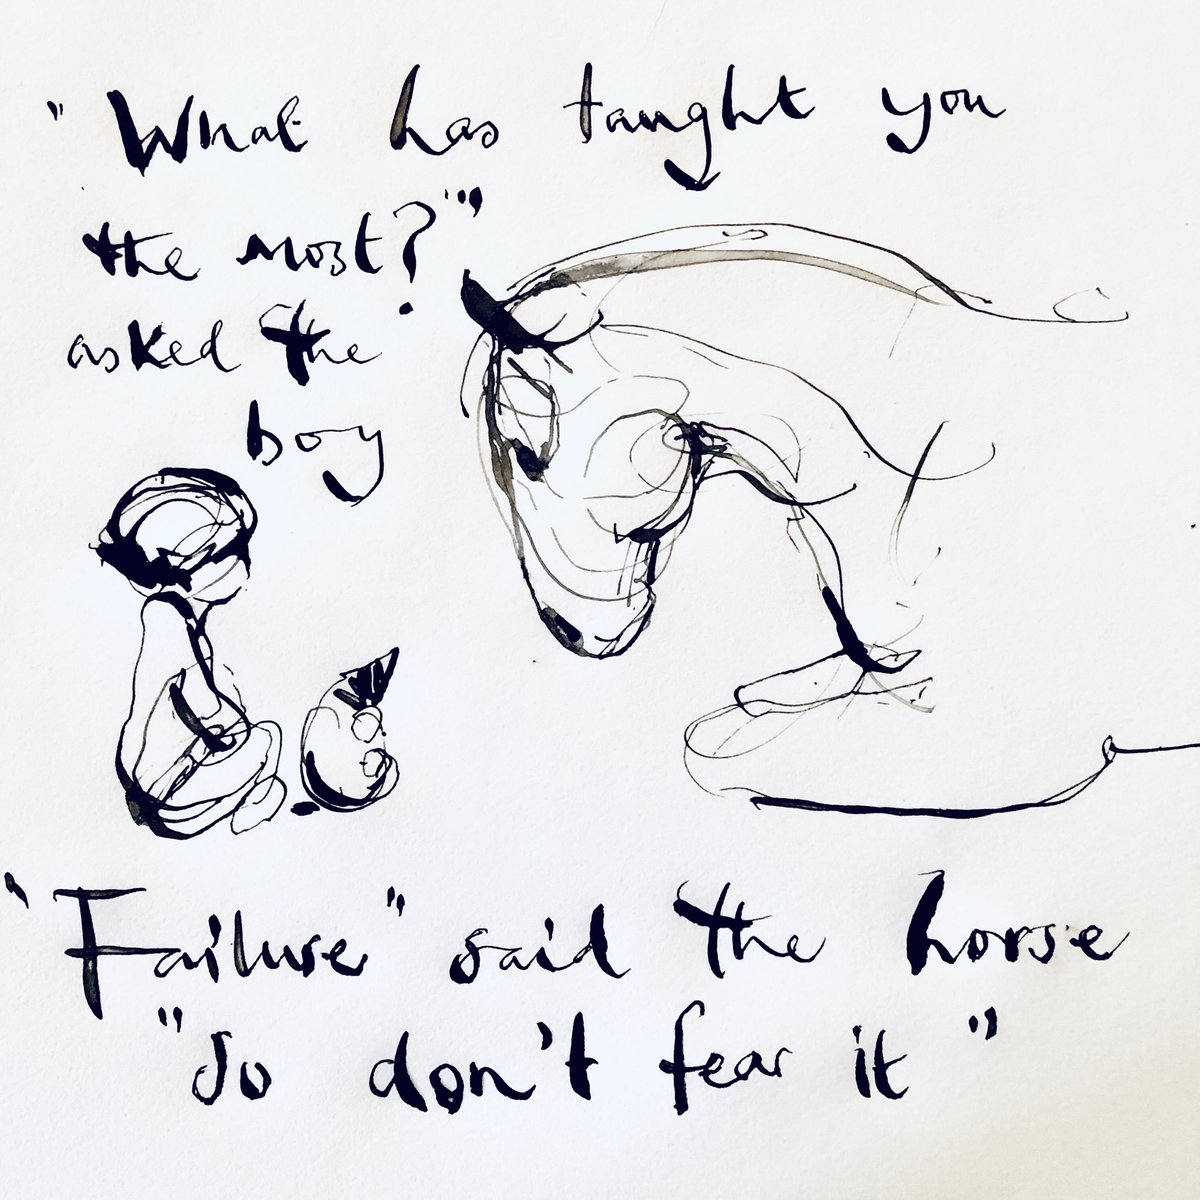 "What has taught you
the most?"
asked the
boy
"Failure" said the horse
"So don't fear it"